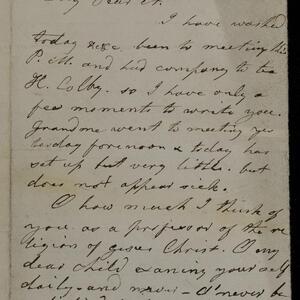 My dear A.
I have washed
today &c. been to meeting this
P.M. and had company to tea
H. Colby. so I have only a
few moments to write you.
Grandme went to meeting yes
terday forenoon & today has
set up but very little. but
does not appear sick.
O how much I think of
you as a professor of the re
ligion of Jesus Christ. O my
dear child examing yourself
daily - and never - O never be